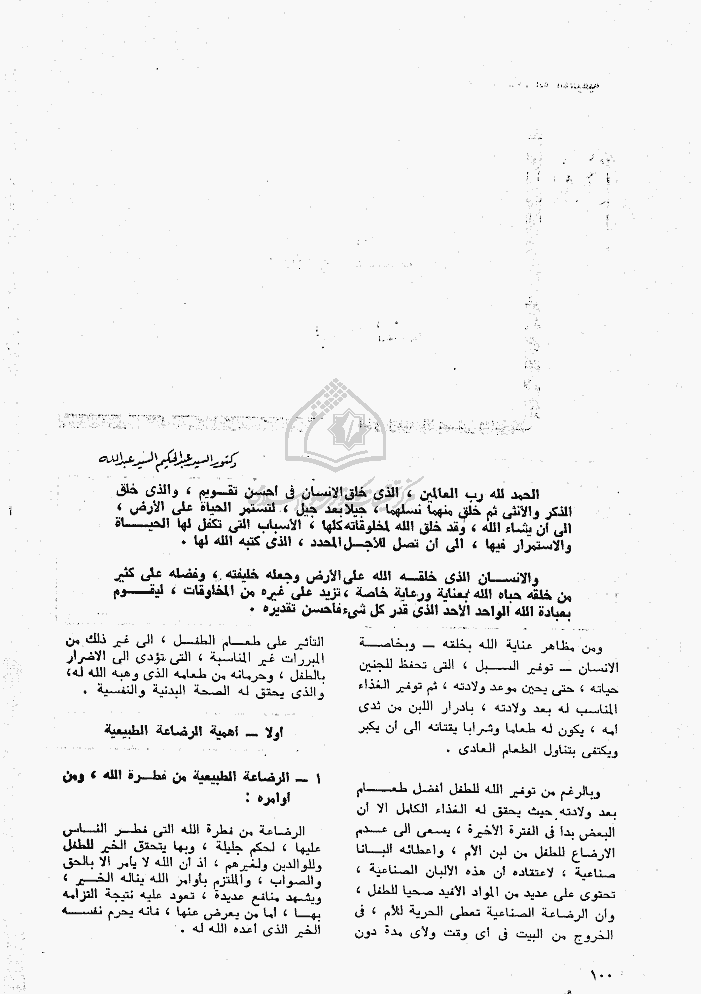 دكتور السيد عبد الحكيم السيد عبد الله
الحمد لله رب العالمين ، الذى خلق الانسان فى أحسن تقويم ، والذى خلق
الذكر والأنثى ثم خلق منهما نسلهما ، جيلا بعد جيل ، لتستمر الحياة على الأرض ،
الى أن يشاء الله ، وقد خلق الله لمخلوقاته كلها ، الأسباب التى تكفل لها الحيـــاة
والاستمرار فيها ، الى أن تصل للأجـل المحدد ، الذى كتبه الله لها .
والانســان الذى خلقــه الله على الأرض وجعله خليفته ، وفضله على كثير
من خلقه حباه الله بعناية ورعاية خاصة ، تزيد على غيره من المخلوقات ، ليقــوم
بعبادة الله الواحد الأحد الذى قدر كل شىء فأحسن تقديره .
ومن مظاهر عناية الله بخلقه – وبخاصــة
الانسان – توفير الســبل ، التى تحفظ للجنين
حياته ، حتى يحين موعد ولادته ، ثم توفير الغذاء
المناسب له بعد ولادته ، بادرار اللبن من ثدى
أمه ، يكون له طعاما وشرابا يقتاته الى أن يكبر
ويكتفى بتناول الطعام العادى .
وبالرغم من توفير الله للطفل أفضل طعــــام
بعد ولادته حيث يحقق له الغذاء الكامل الا أن
البعض بدأ فى الفترة الأخيرة ، يسعى الى عــدم
الارضاع للطفل من لبن الأم ، واعطائه البــانا
صناعية ، لاعتقاده أن هذه الألبان الصناعية ،
تحتوى على عديد من المواد الأفيد صحيا للطفل ،
وأن الرضاعة الصناعية تعطى الحرية للأم ، فى
الخروج من البيت فى أى وقت ولأى مدة دون
التأثير على طعــام الطفــل ، الى غير ذلك من
المبررات غير المناسبة ، التى تؤدى الى الاضرار
بالطفل ، وحرمانه من طعامه الذى وهبه الله له،
والذى يحقق له الصحة البدنية والنفسية .
أولا – أهمية الرضاعة الطبيعية
١ – الرضاعة الطبيعية من فطـرة الله ، ومن
أوامره :
الرضاعة من فطرة الله التى فطـر النــاس
عليها ، لحكم جليلة ، وبها يتحقق الخير للطفل
وللوالدين ولغيرهم ، اذ أن الله لا يأمر الا بالحق
والصواب ، والملتزم بأوامر الله يناله الخــير ،
ويشهد منافع عديدة ، تعود عليه نتيجة التزامه
بهــا ، أما من يعرض عنها ، فانه يحرم نفســه
الخير الذى أعده الله له .
١٠٠